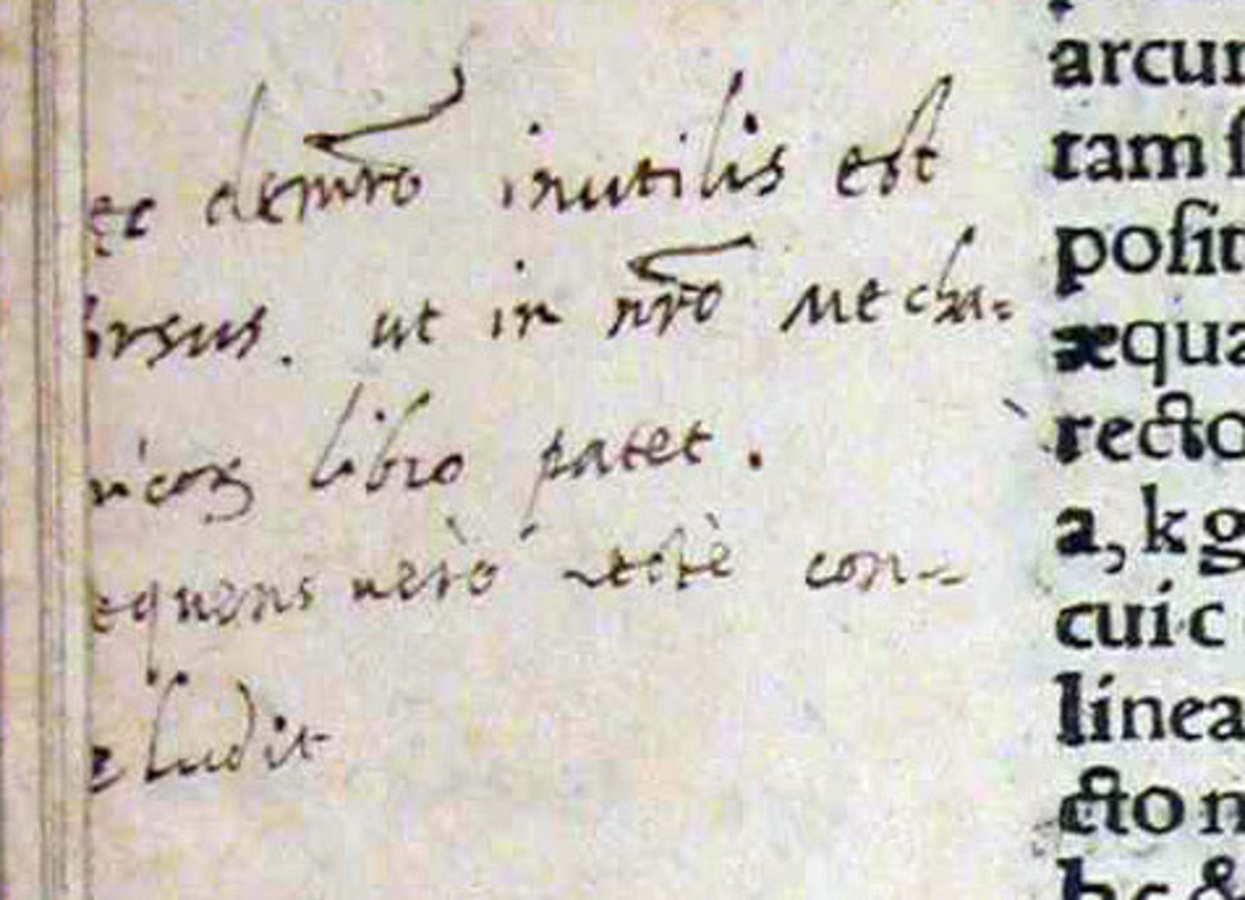 ec demr̃o inutilis est
rsus. ut in nr̃o Mecha=
nicoꝝ libro patet.
equens uerò rectè con=
cludit
arcur
tam ſ
poſit
æqua
recto
a, k g
cui c
linea
cto n
b c &